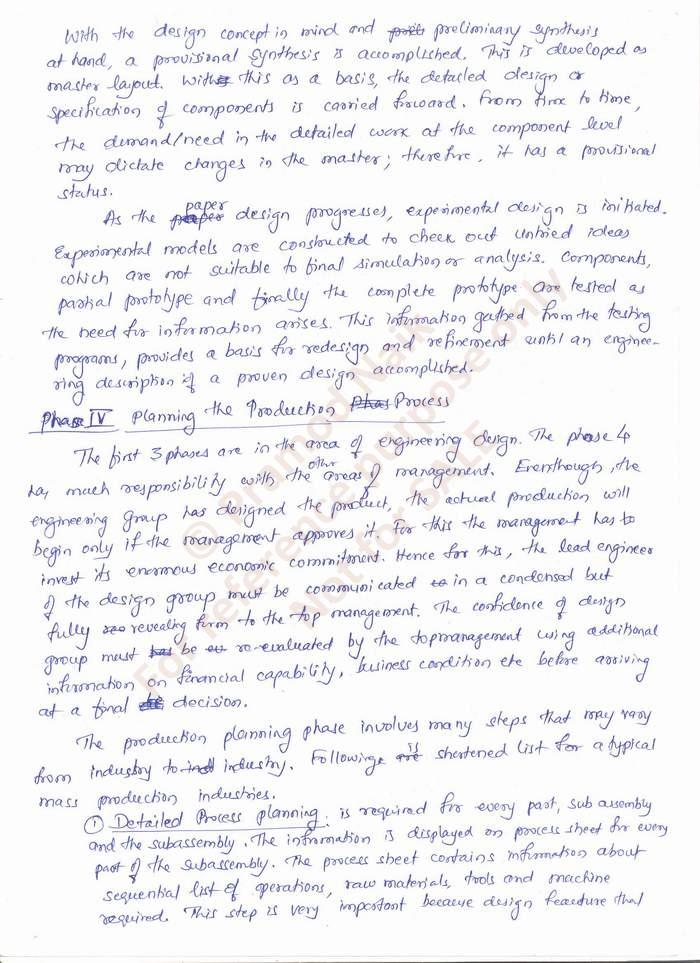 With the design concept in mind and preliminary synthesis
at hand, a provisional synthesis is accomplished. This is developed as
master layout. With this as a basis, the detailed design or
specification of components is carried forward. From time to time,
the demand/need in the detailed work at the component level
may dictate changes in the master; therefore, it has a provisional
status.
As the paper design progresses, experimental design is initiated.
Experimental models are constructed to check out untried ideas
which are not suitable to final simulation or analysis. Components,
partial prototype and finally the complete prototype are tested as
the need for information arises. This information gathed from the testing
programs, provides a basis for redesign and refinement until an enginee-
ring description of a proven design accomplished.
Phase IV Planning the Production Process
The first 3 phases are in the area of engineering design. The phase 4
has much responsibility with the other areas of management. Eventhough, the
engineering group has designed the product, the actual production will
begin only if the management approves it. For this the management has to
invest its enormous economic commitment. Hence for this, the lead engineer
of the design group must be communicated in a condensed but
fully revealing form to the top management. The confidence of design
group must be re-evaluated by the topmanagement using additional
information on financial capability, business condition etc before arriving
at a final decision.
The production planning phase involves many steps that may vary
from industry to industry. Following is shortened list for a typical
mass production industries.
① Detailed Process planning: is required for every part, sub assembly
and the subassembly. The information is displayed on process sheet for every
part of the subassembly. The process sheet contains information about
sequential list of operations, raw materials, tools and machine
required. This step is very important because design feacture that
© Pramod Naik
For reference purpose only
Not for SALE